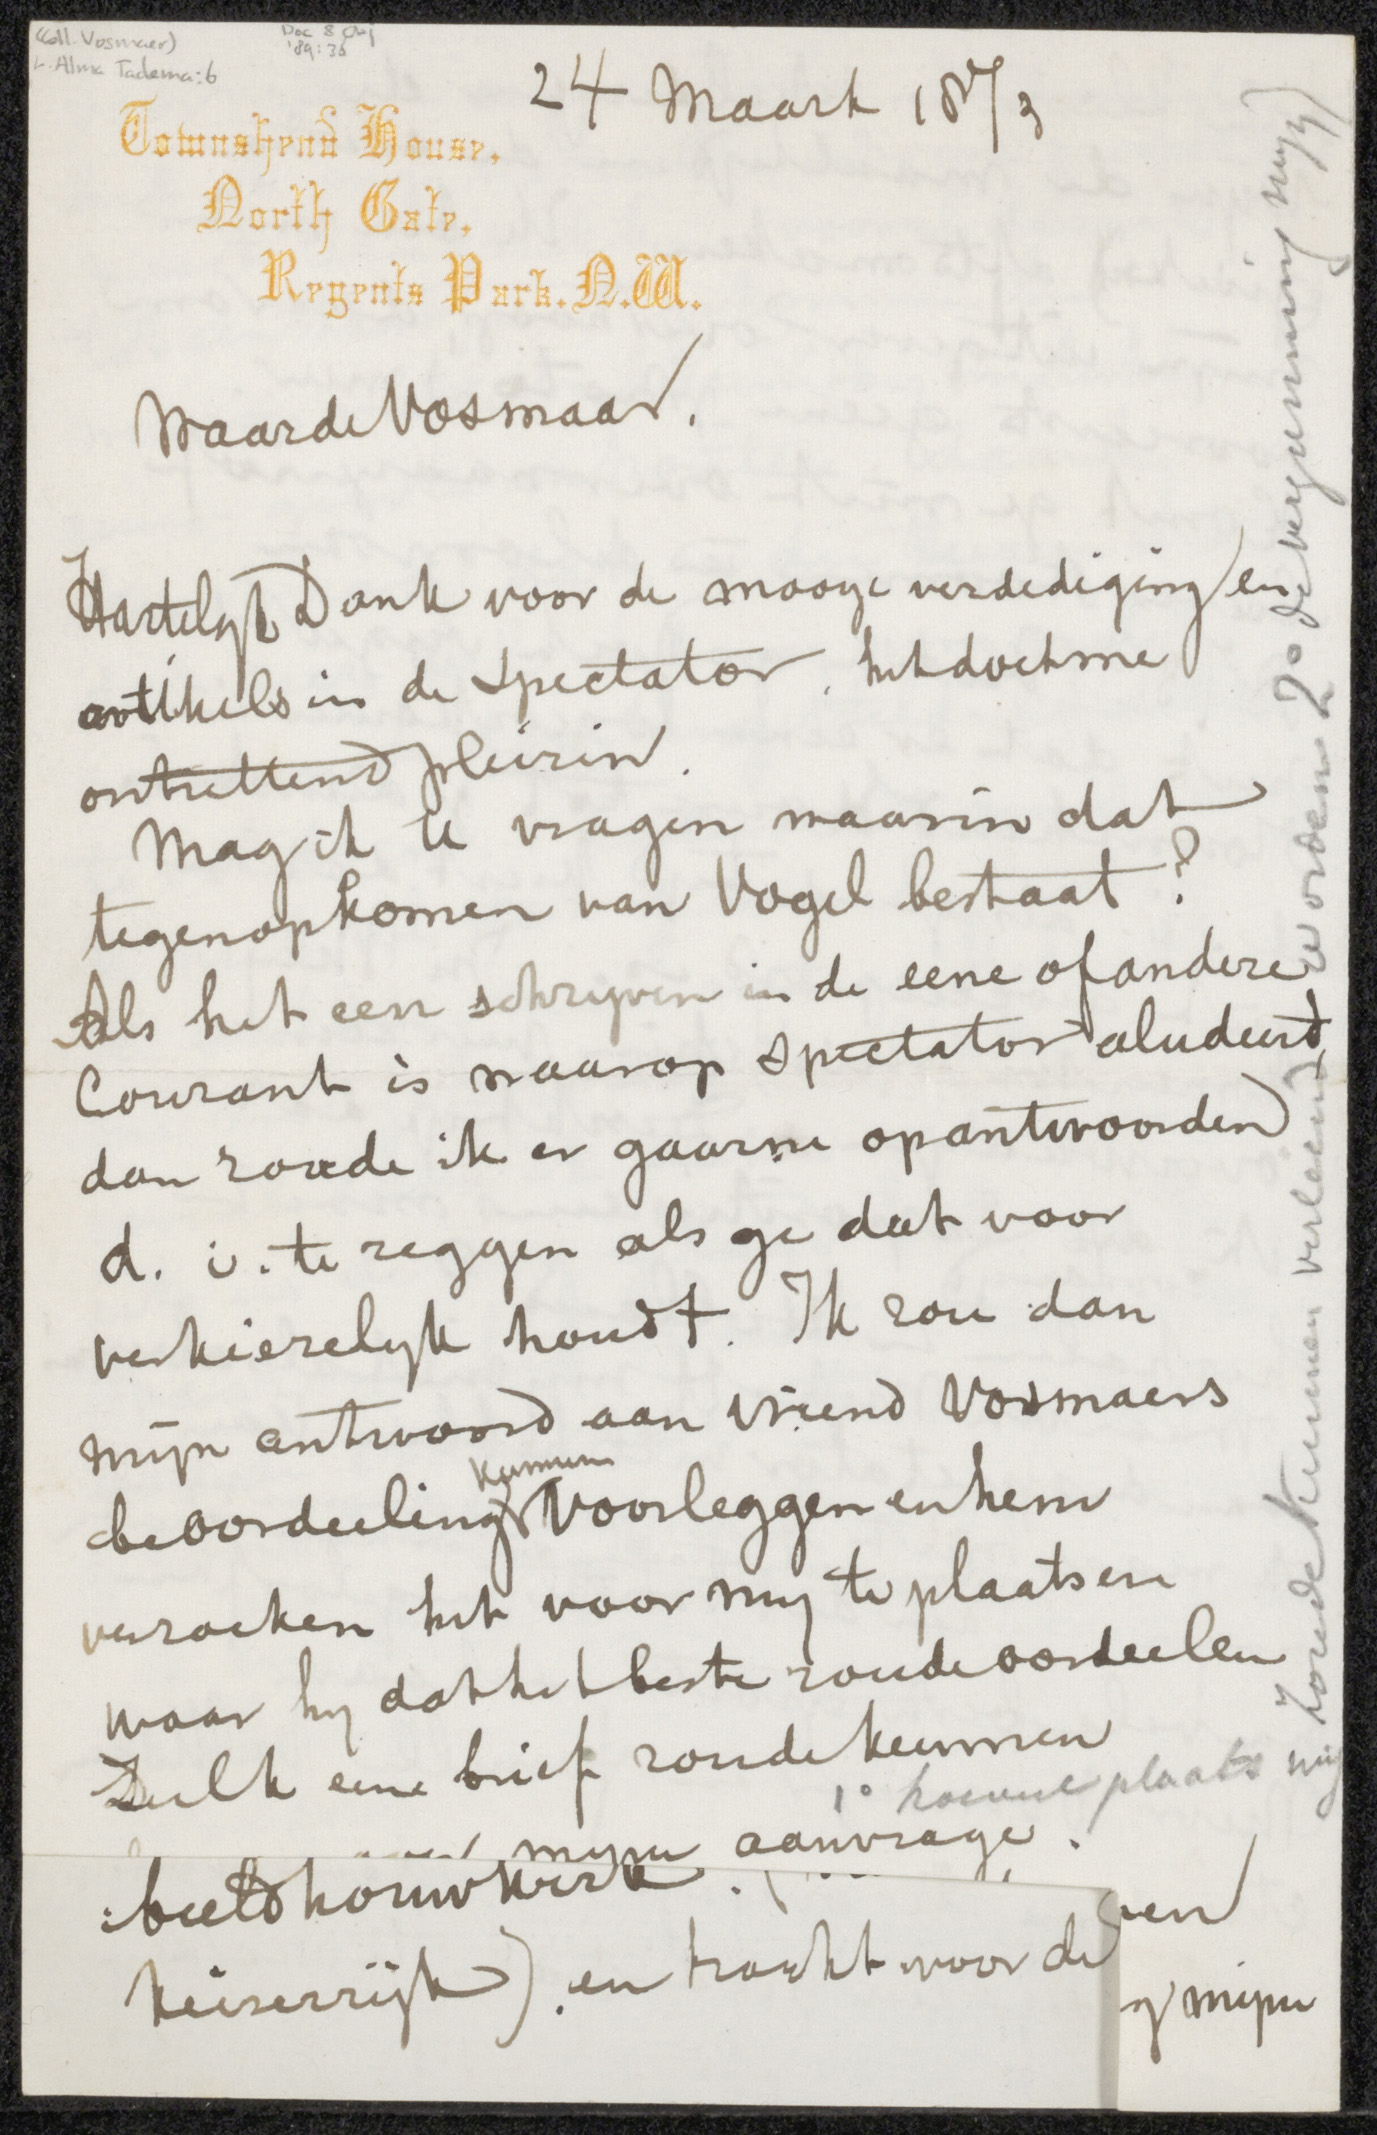 (Coll. Vosmaer)
L. Alma Tadema: 6
Doc 8 Obj
'89: 36
24 Maart 1873
Townshend House,
North Gate,
Regents Park. N.W.
Waarde Vosmaar.
Hartelyk Dank voor de mooye verdediging en
artikels in de Spectator, het doet me
ontzettend pleizin.
Mag ik U vragen waarin dat
tegenopkomen van Vogel bestaat?
Als het een schryven in de eene of andere
Courant is waarop Spectator aludeert,
dan zoude ik er gaarne op antwoorden
d. i. te zeggen als ge dat voor
verkiezelyk houdt. Ik zou dan
mijn antwoord aan vriend Vosmaers
beoordeeling kunnen voorleggen en hem
verzoeken het voor my te plaatsen
waar hy dat het beste zoude oordeelen
Zulk eene brief zoude kunnen
mynen aanvrage.
1° hoeveel plaats my
zoude kunnen verleend worden 2° de vergunning my
beeldhouwkerk. (
keizerrijk) en tracht voor de
ven
mijn